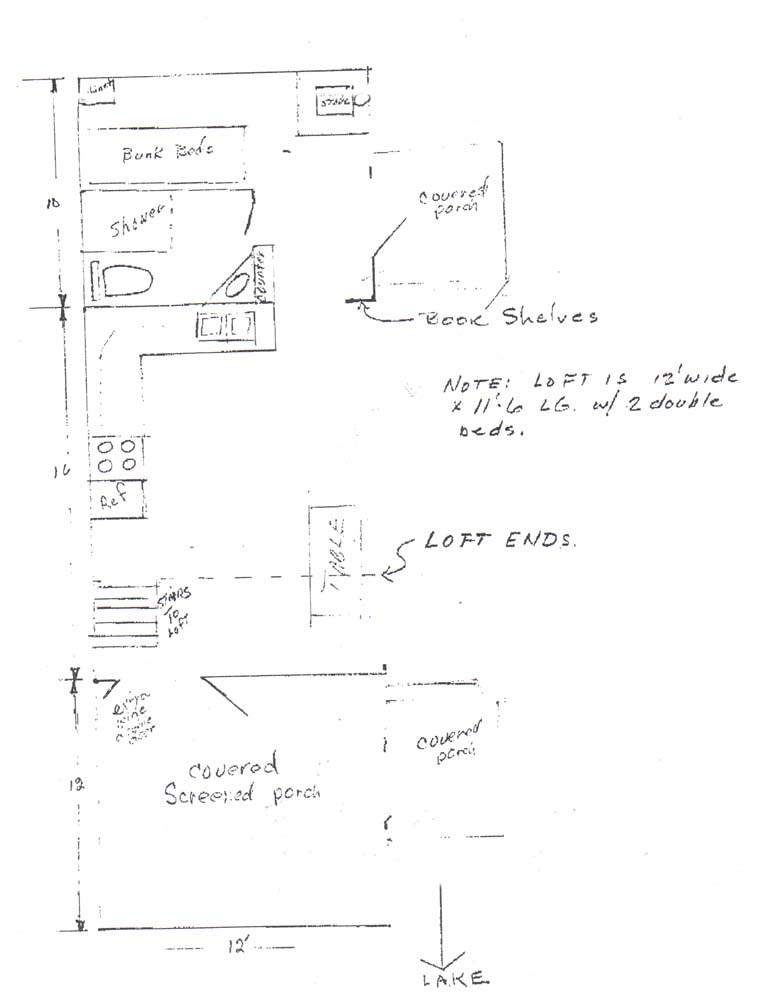 STOVE
Bunk Beds
10
Shower
covered
porch
counter
BOOK Shelves
NOTE: LOFT IS 12' wide
x 11'-6 LG. w/ 2 double
beds.
16
Ref
TABLE
LOFT ENDS.
STAIRS
TO
LOFT
12
covered
Screened porch
covered
porch
12'
LAKE